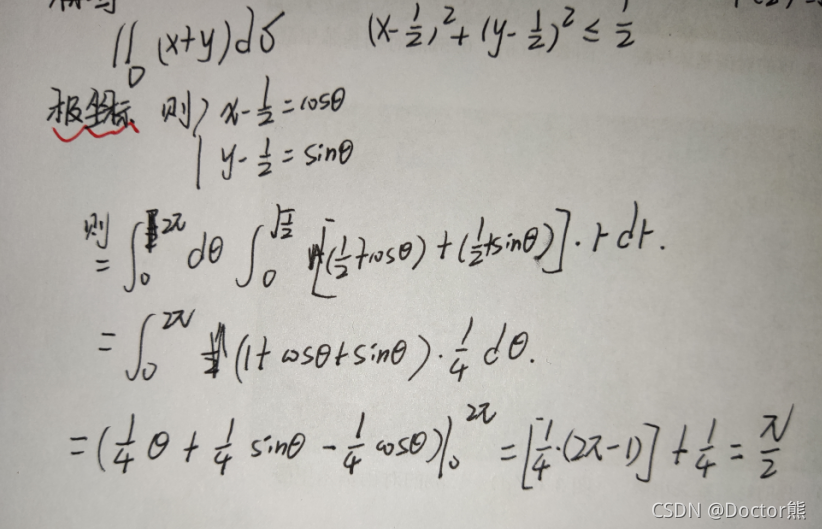 ∬_D (x+y)dσ (x-1/2)²+(y-1/2)²≤1/2
极坐标 则 { x-1/2=cosθ
y-1/2=sinθ
则
=∫_0^{2π} dθ ∫_0^{√(1/2)} [(1/2+cosθ)+(1/2+sinθ)]·rdr.
=∫_0^{2π} (1+cosθ+sinθ)·1/4 dθ.
=(1/4 θ+1/4 sinθ-1/4 cosθ)|_0^{2π} =[1/4·(2π-1)]+1/4=π/2
CSDN @Doctor熊